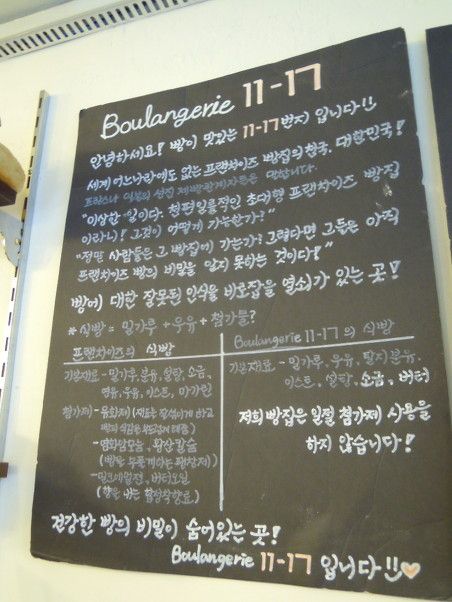 Boulangerie 11-17
안녕하세요! 빵이 맛있는 11-17번지 입니다!!
세계 어느나라에도 없는 프랜차이즈 빵집의 천국, 대한민국!
프랑스나 일본의 성진 제빵관계자들은 말합니다.
"이상한 일이다. 천편일률적인 초대형 프랜차이즈 빵집
이라니! 그것이 어떻게 가능한가?"
"정면 사람들은 그 빵집에 가는가? 그렇다면 그들은 아직
프랜차이즈 빵의 비밀을 알지 못하는 것이다!"
빵에 대한 잘못된 인식을 바로잡을 열쇠가 있는 곳!
# 식빵 = 밀가루 + 우유 + 첨가물?
프랜차이즈의 식빵
기본재료 - 밀가루, 분유, 설탕, 소금,
우유, 이스트, 마가린
첨가제 - 유화제
빵의 식감을 부드럽게
- 염화암모늄, 황산칼슘
(빵을 부풀게하는 팽창제)
Boulangerie 11-17의 식빵
기본재료 - 밀가루, 우유, 탈지분유,
이스트, 설탕, 소금, 버터
저희 빵집은 일절 첨가제 사용을
하지 않습니다!
건강한 빵의 비밀이 숨어있는 곳!
Boulangerie 11-17 입니다!!♡